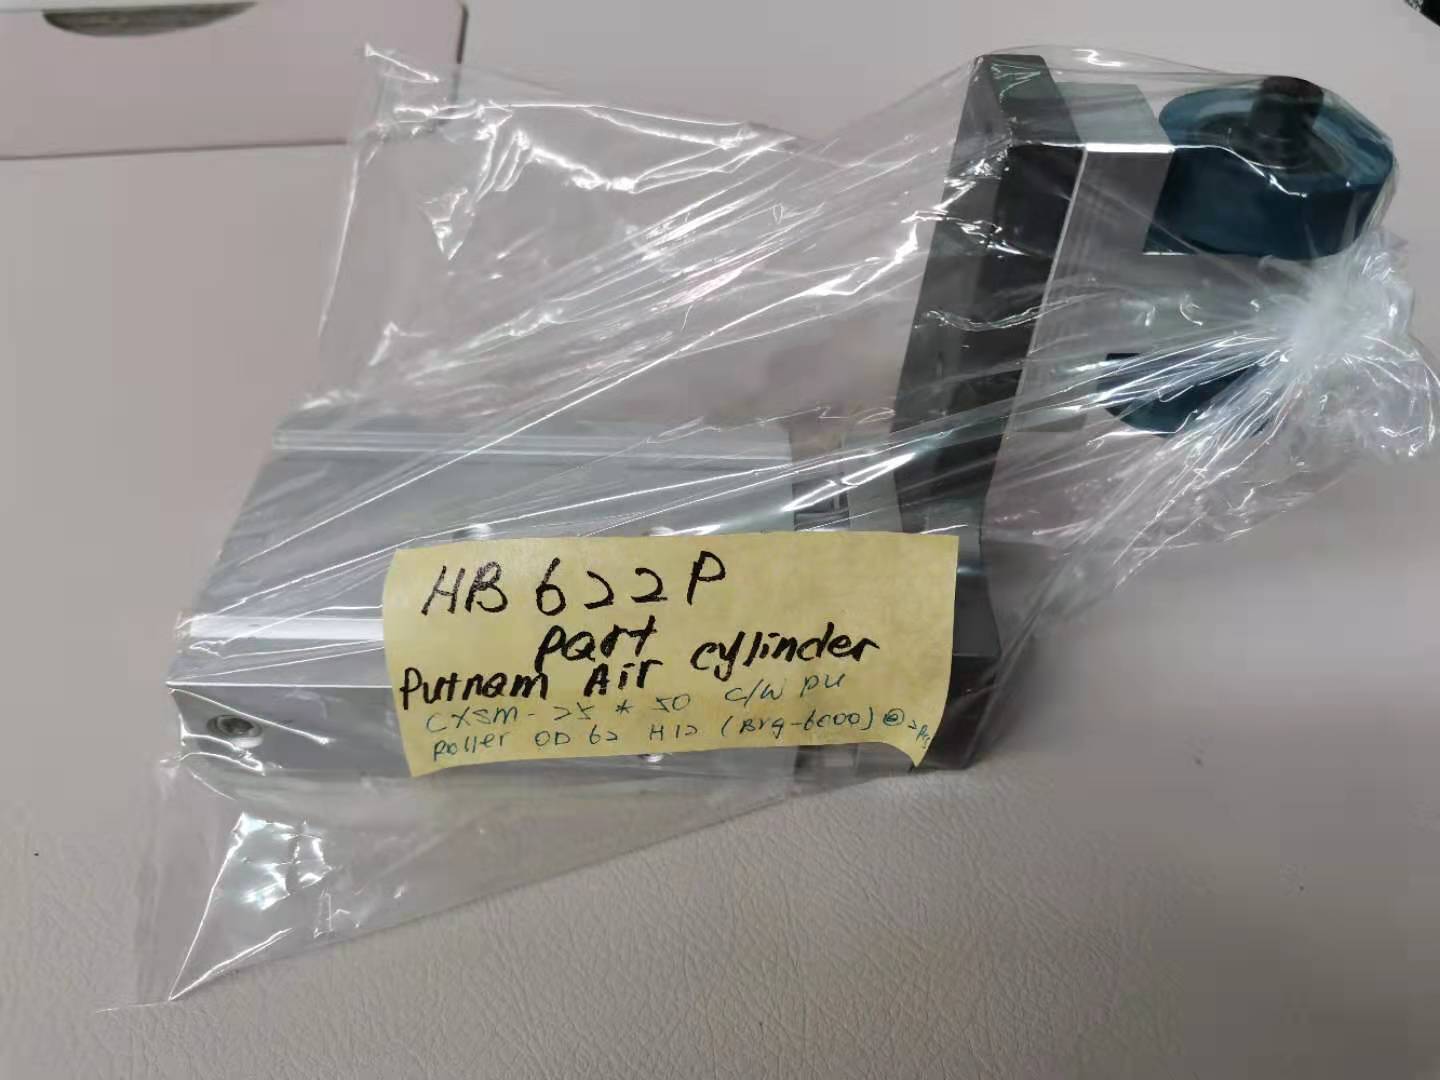 HB 622P
part
Putnam Air cylinder
CXSM-25 * 50 c/w pu
roller OD 62 H12 (Brg-6000) @ 2pcs